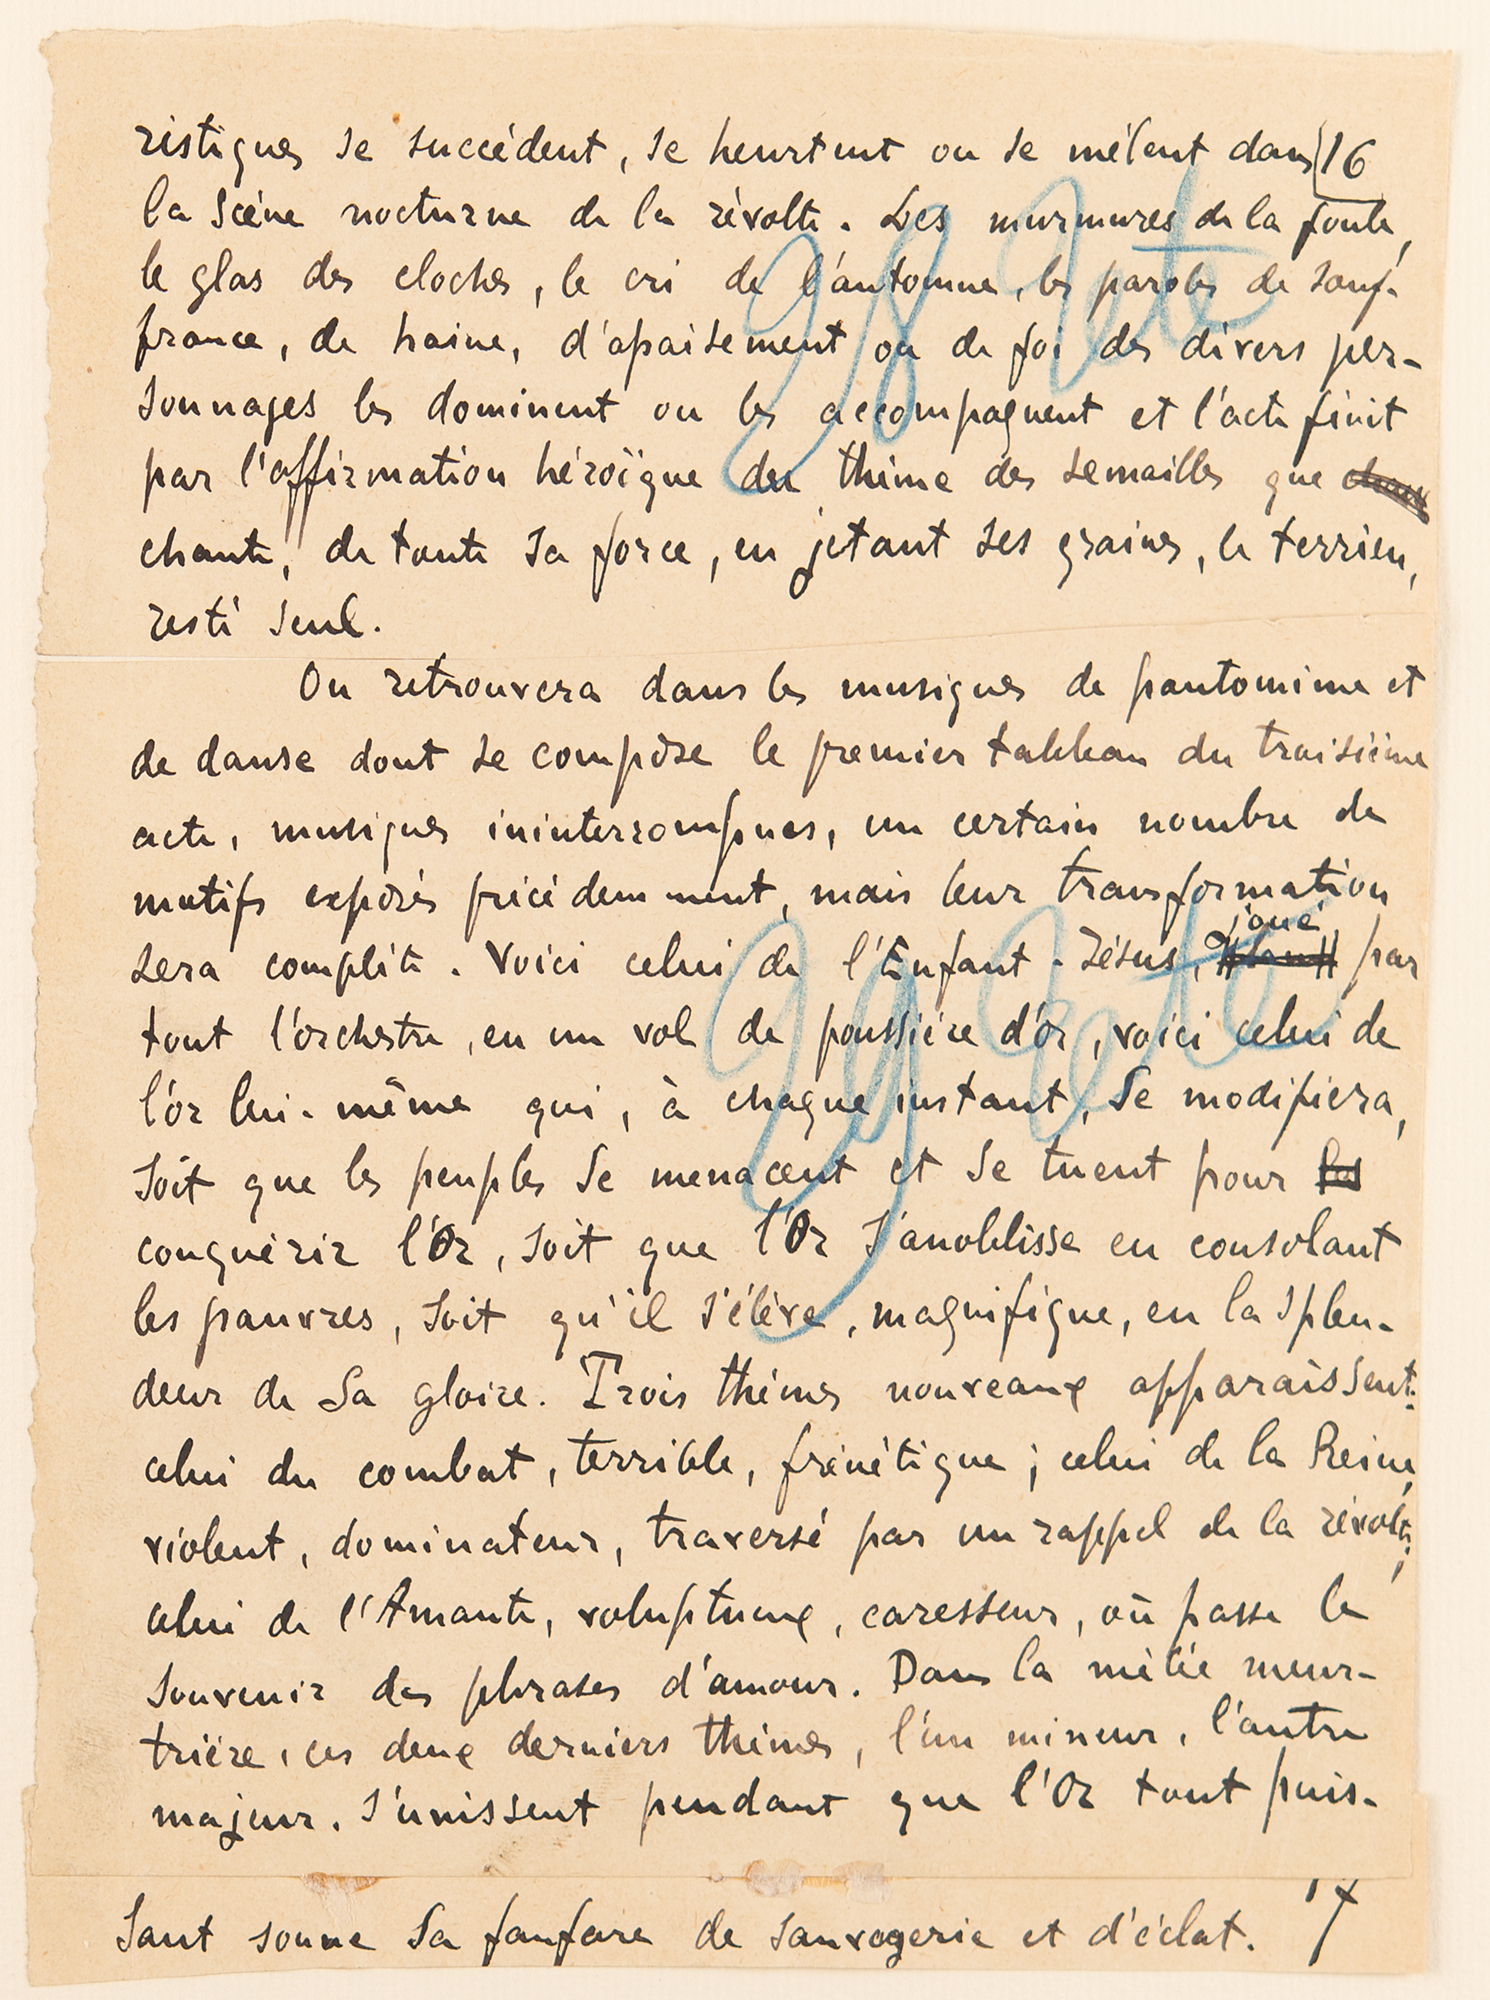 ristiques se succèdent, se heurtent ou se mêlent dans 16
la scène nocturne de la révolte. Les murmures de la foule,
le glas des cloches, le cri de l'automne, les paroles de souf-
france, de haine, d'apaisement ou de foi des divers per-
sonnages les dominent ou les accompagnent et l'acte finit
par l'affirmation héroïque du thème des semailles que
chante, de toute sa force, en jetant ses grains, le terrien,
resté seul.
On retrouvera dans les musiques de pantomime et
de danse dont se compose le premier tableau du troisième
acte, musiques ininterrompues, un certain nombre de
motifs exposés précédemment, mais leur transformation
joué
sera complète. Voici celui de l'Enfant-Jésus, par
tout l'orchestre, en un vol de poussière d'or, voici celui de
l'or lui-même qui, à chaque instant, se modifiera,
soit que les peuples se menacent et se tuent pour
conquérir l'Or, soit que l'Or s'anoblisse en consolant
les pauvres, soit qu'il s'élève, magnifique, en la splen-
deur de sa gloire. Trois thèmes nouveaux apparaissent:
celui du combat, terrible, frénétique; celui de la Reine,
violent, dominateur, traversé par un rappel de la révolte;
celui de l'Amante, voluptueux, caresseur, où passe le
souvenir des phrases d'amour. Dans la mêlée meur-
trière, ces deux derniers thèmes, l'un mineur, l'autre
majeur, s'unissent pendant que l'Or tout puis-
17
sant sonne sa fanfare de sauvagerie et d'éclat.